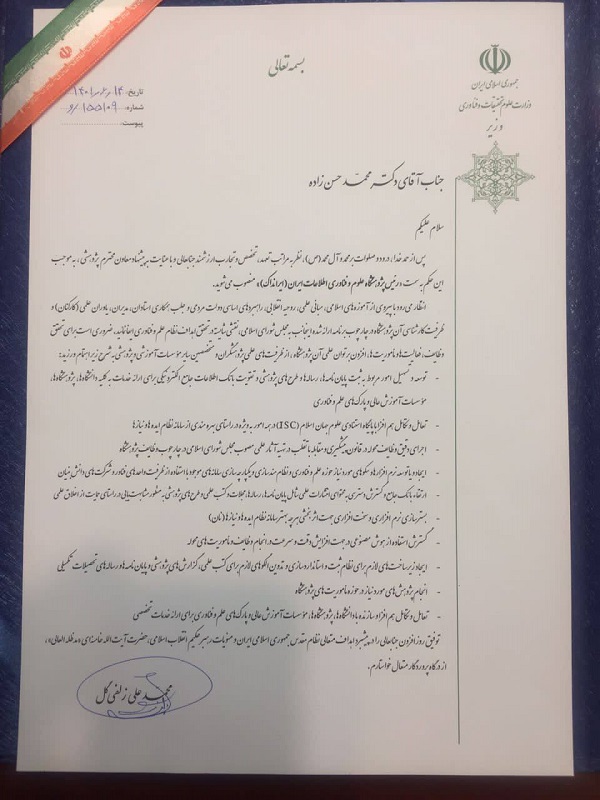 بسمه تعالی
جمهوری اسلامی ایران
وزارت علوم تحقیقات و فناوری
وزیر
تاریخ:
شماره: ۱۵۵۱۰۹/و
پیوست:
جناب آقای دکتر محمد حسن زاده
سلام علیکم
پس از حمد خدا، درود و صلوات بر محمد و آل محمد (ص)، نظر به مراتب تعهد، تخصص و تجارب ارزشمند جنابعالی و با عنایت به پیشنهاد معاون محترم پژوهشی، به موجب
این حکم به سمت «رئیس پژوهشگاه علوم و فناوری اطلاعات ایران (ایرانداک)» منصوب می‌شوید.
انتظار می‌رود با پیروی از آموزه‌های اسلامی، مبانی علمی، روحیه انقلابی، راهبردهای اساسی دولت مردمی و جلب همکاری استادان، مدیران، یاوران علمی (کارکنان) و
ظرفیت کارشناسی آن پژوهشگاه در چارچوب برنامه ارائه شده اینجانب به مجلس شورای اسلامی، نقشی شایسته در تحقق اهداف نظام علم و فناوری ایفا نمائید. ضروری است برای تحقق
وظایف، فعالیت‌ها و ماموریت‌ها، افزون بر توان علمی آن پژوهشگاه، از ظرفیت‌های علمی پژوهشگران و متخصصین سایر مؤسسات آموزشی و پژوهشی به شرح زیر اهتمام ورزید:
- توسعه و تسهیل امور مربوط به ثبت پایان‌نامه‌ها، رساله‌ها و طرح‌های پژوهشی و تقویت بانک اطلاعات جامع الکترونیکی برای ارائه خدمات به کلیه دانشگاه‌ها، پژوهشگاه‌ها،
مؤسسات آموزش عالی و پارک‌های علم و فناوری
- تعامل و تکامل هم افزا با پایگاه استنادی علوم جهان اسلام (ISC) در همه امور به ویژه در راستای بهره مندی از سامانه نظام ایده‌ها و نیازها
- اجرای دقیق وظایف محوله در قانون پیشگیری و مقابله با تقلب در تهیه آثار علمی مصوب مجلس شورای اسلامی در چارچوب وظایف پژوهشگاه
- ایجاد و یا توسعه نرم افزارها و سکوهای مورد نیاز حوزه علم و فناوری و نظام مندسازی و یکپارچه سازی سامانه‌های موجود با استفاده از ظرفیت واحدهای فناور و شرکت‌های دانش بنیان
- ارتقاء بانک جامع و گسترش دسترسی، محتوای انتشارات علمی شامل پایان نامه‌ها، رساله‌ها، مجلات و کتب علمی و طرح‌های پژوهشی به منظور مشابهت‌یابی در راستای حمایت از اخلاق علمی
- بهترسازی نرم افزاری و سخت افزاری جهت اثر بخشی هرچه بهتر سامانه نظام ایده‌ها و نیازها (نان)
- گسترش استفاده از هوش مصنوعی در جهت افزایش دقت و سرعت در انجام وظایف و ماموریت‌های محوله
- ایجاد زیرساخت‌های لازم برای نظام ثبت و استانداردسازی و تدوین الگوهای لازم برای کتب علمی، گزارش‌های پژوهشی و پایان نامه‌ها و رساله‌های تحصیلات تکمیلی
- انجام پژوهش‌های مورد نیاز در حوزه ماموریت‌های پژوهشگاه
- تعامل و تکامل هم افزا و سازنده با دانشگاه‌ها، پژوهشگاه‌ها، مؤسسات آموزش عالی و پارک‌های علم و فناوری برای ارائه خدمات تخصصی
توفیق روز افزون جنابعالی را در پیشبرد اهداف متعالی نظام مقدس جمهوری اسلامی ایران و منویات رهبر حکیم انقلاب اسلامی، حضرت آیت الله خامنه‌ای «مدظله العالی»،
از درگاه پروردگار متعال خواستارم.
محمد علی زلفی گل